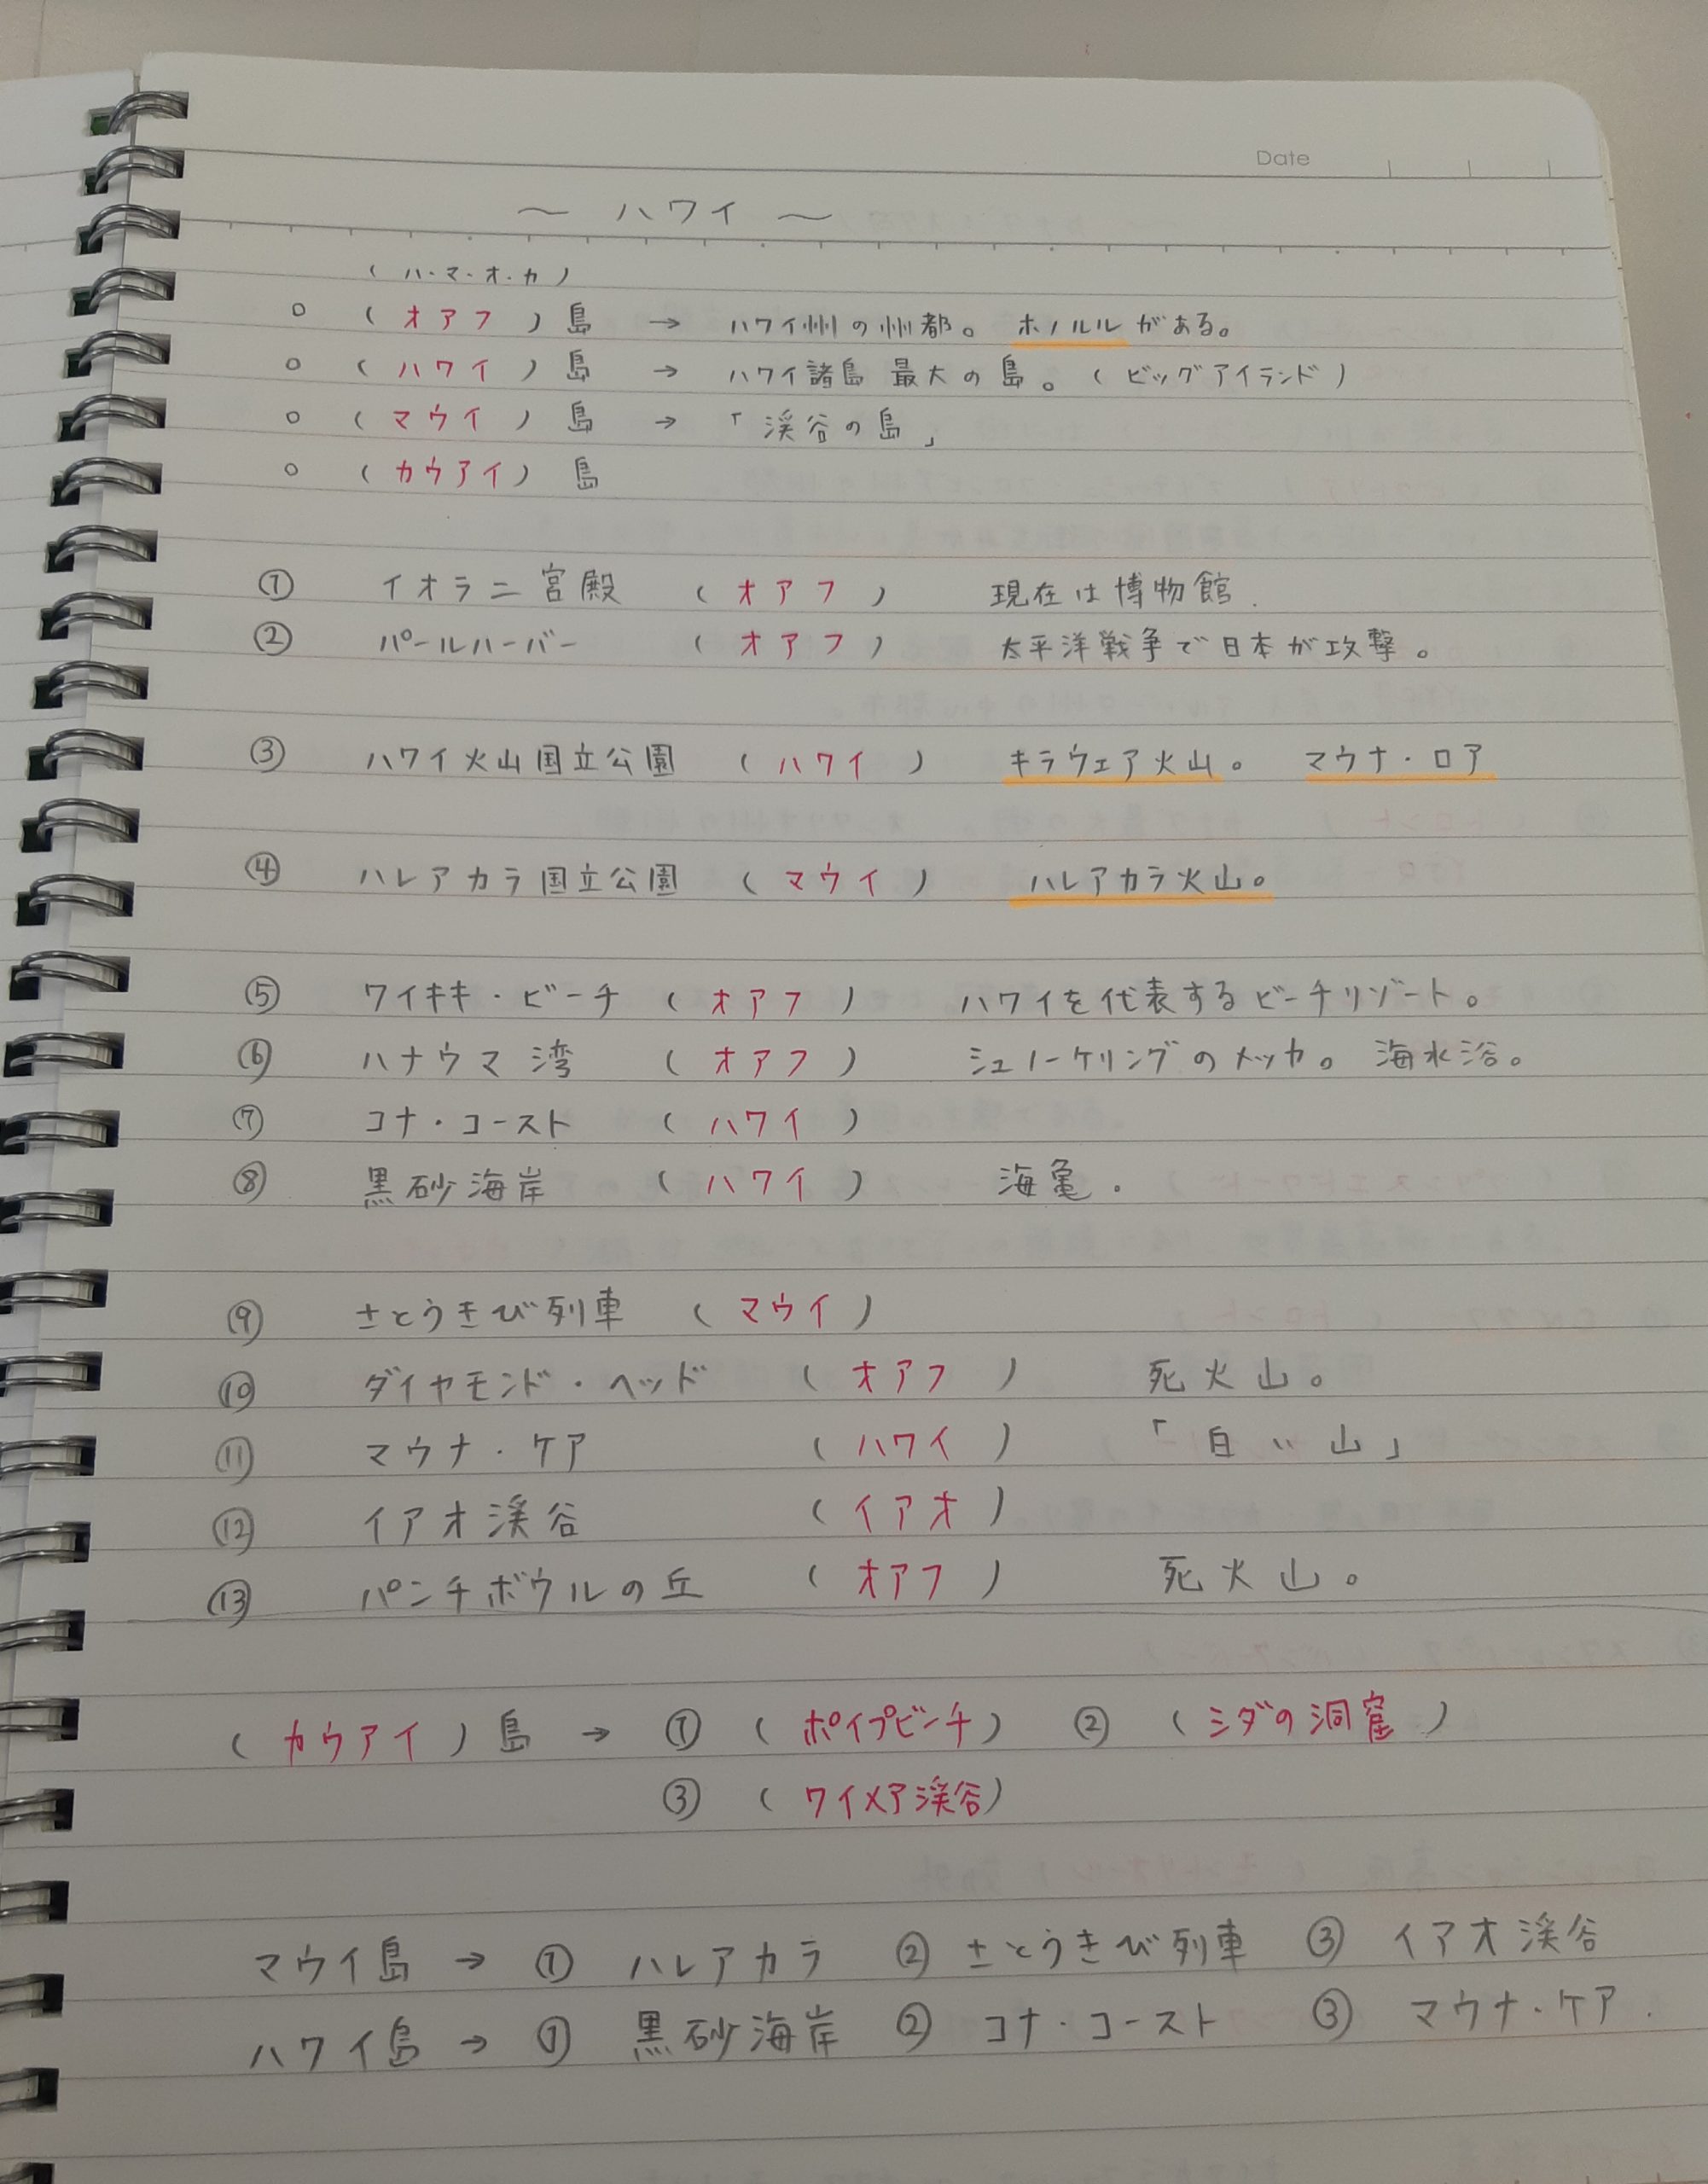 Date
～ ハワイ ～
( ハ・マ・オ・カ )
○ ( オアフ ) 島 → ハワイ州の州都。 ホノルルがある。
○ ( ハワイ ) 島 → ハワイ諸島 最大の島。( ビッグアイランド )
○ ( マウイ ) 島 → 「渓谷の島」
○ ( カウアイ ) 島
① イオラニ宮殿 ( オアフ ) 現在は博物館.
② パールハーバー ( オアフ ) 太平洋戦争で日本が攻撃。
③ ハワイ火山国立公園 ( ハワイ ) キラウェア火山。 マウナ・ロア
④ ハレアカラ国立公園 ( マウイ ) ハレアカラ火山。
⑤ ワイキキ・ビーチ ( オアフ ) ハワイを代表するビーチリゾート。
⑥ ハナウマ湾 ( オアフ ) シュノーケリングのメッカ。 海水浴。
⑦ コナ・コースト ( ハワイ )
⑧ 黒砂海岸 ( ハワイ ) 海亀.
⑨ さとうきび列車 ( マウイ )
⑩ ダイヤモンド・ヘッド ( オアフ ) 死火山。
⑪ マウナ・ケア ( ハワイ ) 「白い山」
⑫ イアオ渓谷 ( イアオ )
⑬ パンチボウルの丘 ( オアフ ) 死火山。
( カウアイ ) 島 → ① ( ポイプビーチ ) ② ( シダの洞窟 )
③ ( ワイメア渓谷 )
マウイ島 → ① ハレアカラ ② さとうきび列車 ③ イアオ渓谷
ハワイ島 → ① 黒砂海岸 ② コナ・コースト ③ マウナ・ケア.